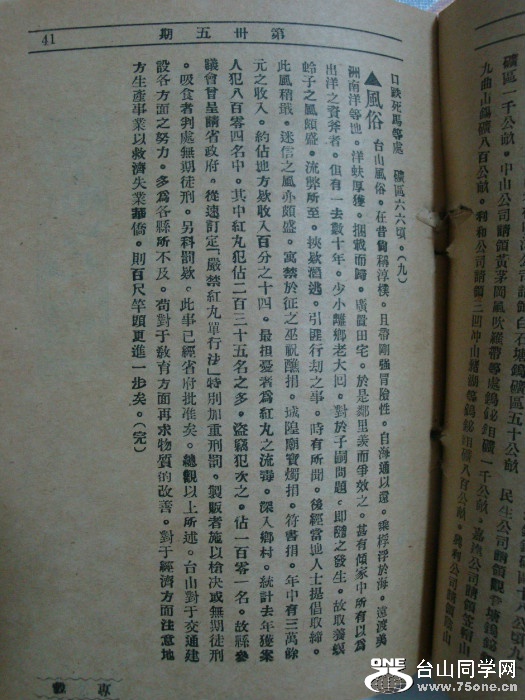 九曲山錫礦八百公畝。利和公司請領三回冲山
礦區一千公畝。中山公司請領黃茅岡
口跌死馬等處 礦區六六頃。(九)
▲風俗 台山風俗。在昔衛稱淳樸。且帶剛強冒險性。自海通以還。乘桴浮於海。遠渡美
洲南洋等地。洋蚨厚獲。捆載而歸。廣置田宅。於是鄰里羨而爭效之。甚有傾家中所有以爲
出洋之資斧者。但有一去數十年。少小離鄉老大回。對於子嗣問題。即隨之發生。故取養螟
蛉子之風頗盛。流弊所至。挾欵潛逃。引匪行刦之事。時有所聞。後經當地人士提倡取締。
此風稍戢。迷信之風亦頗盛。寓禁於征之巫祝醮捐。城隍廟寶燭捐。符書捐。年中有三萬餘
元之收入。約佔地方欵收入百分之十四。最担憂者爲紅丸之流毒。深入鄉村。統計去年獲案
人犯八百零四名中。其中紅丸犯佔二百三十五名之多。盜竊犯次之。佔一百零一名。故縣參
議會曾呈請省政府。從速訂定「嚴禁紅丸單行法」特別加重刑罰。製販者施以槍决或無期徒刑
。吸食者判處無期徒刑。另科罰欵。此事已經省府批准矣。總觀以上所述。台山對于交通建
設各方面之努力。多爲各縣所不及。苟對于敎育方面再求物質的改善。對于經濟方面注意地
方生產事業以救濟失業華僑。則百尺竿頭更進一步矣。(完)
第卅五期
41
ONE
台山同学网
www.75one.cn